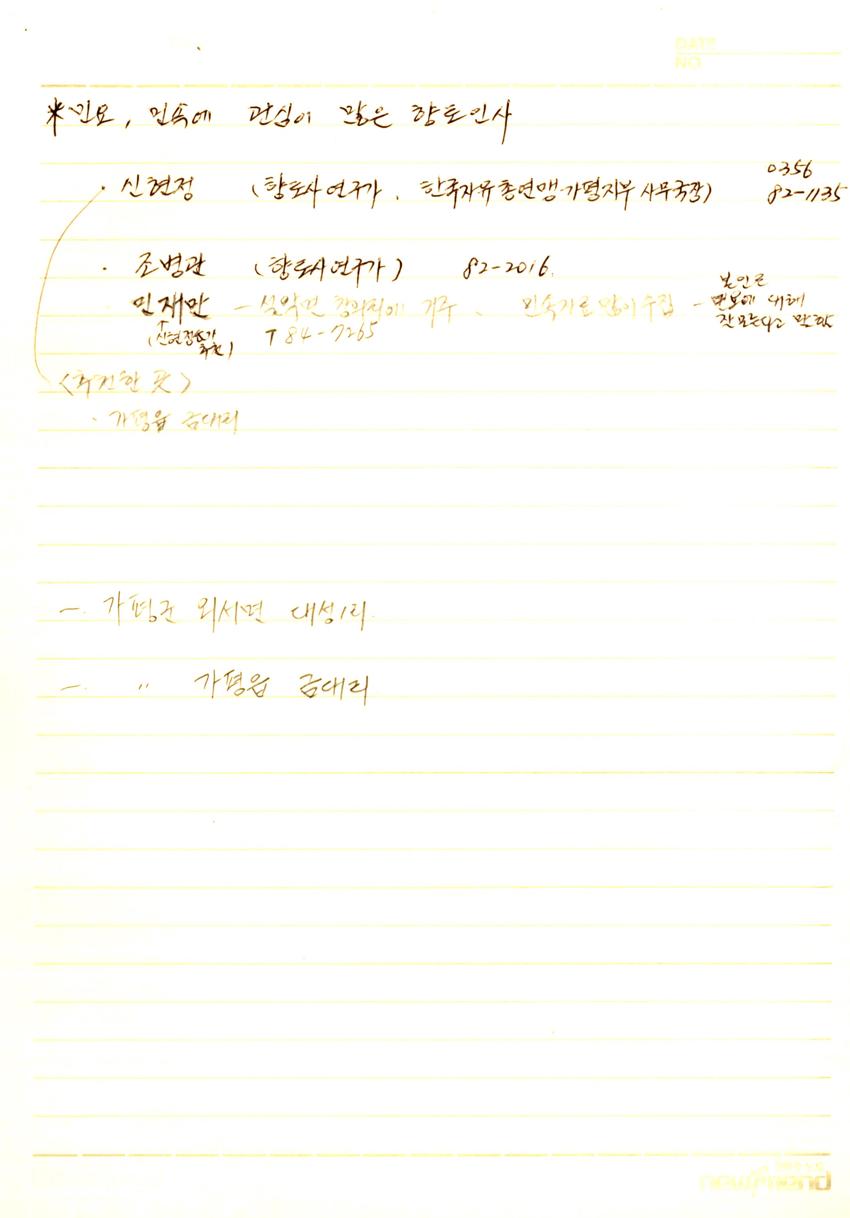 * 민요, 민속에 관심이 많은 향토인사
· 신현정 (향토사 연구가, 한국자유총연맹 가평지부 사무국장) 0356 82-1135
· 조병관 (향토사연구가) 82-2016.
민재만 - 설악면 에 거주, 민속자료 많이 수집 - 본인은 민요에 대해 잘 모른다고 말함
(신현정씨가 추천) T 84-7265
<추천한 곳>
· 가평읍 금대리
- 가평군 외서면 대성1리
- 〃 가평읍 금대리